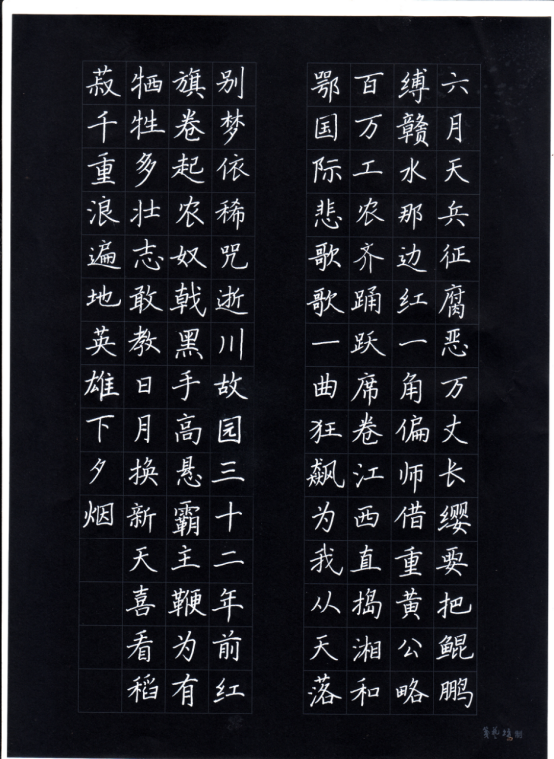 六月天兵征腐恶万丈长缨要把鲲鹏
缚赣水那边红一角偏师借重黄公略
百万工农齐踊跃席卷江西直捣湘和
鄂国际悲歌歌一曲狂飙为我从天落
别梦依稀咒逝川故园三十二年前红
旗卷起农奴戟黑手高悬霸主鞭为有
牺牲多壮志敢教日月换新天喜看稻
菽千重浪遍地英雄下夕烟